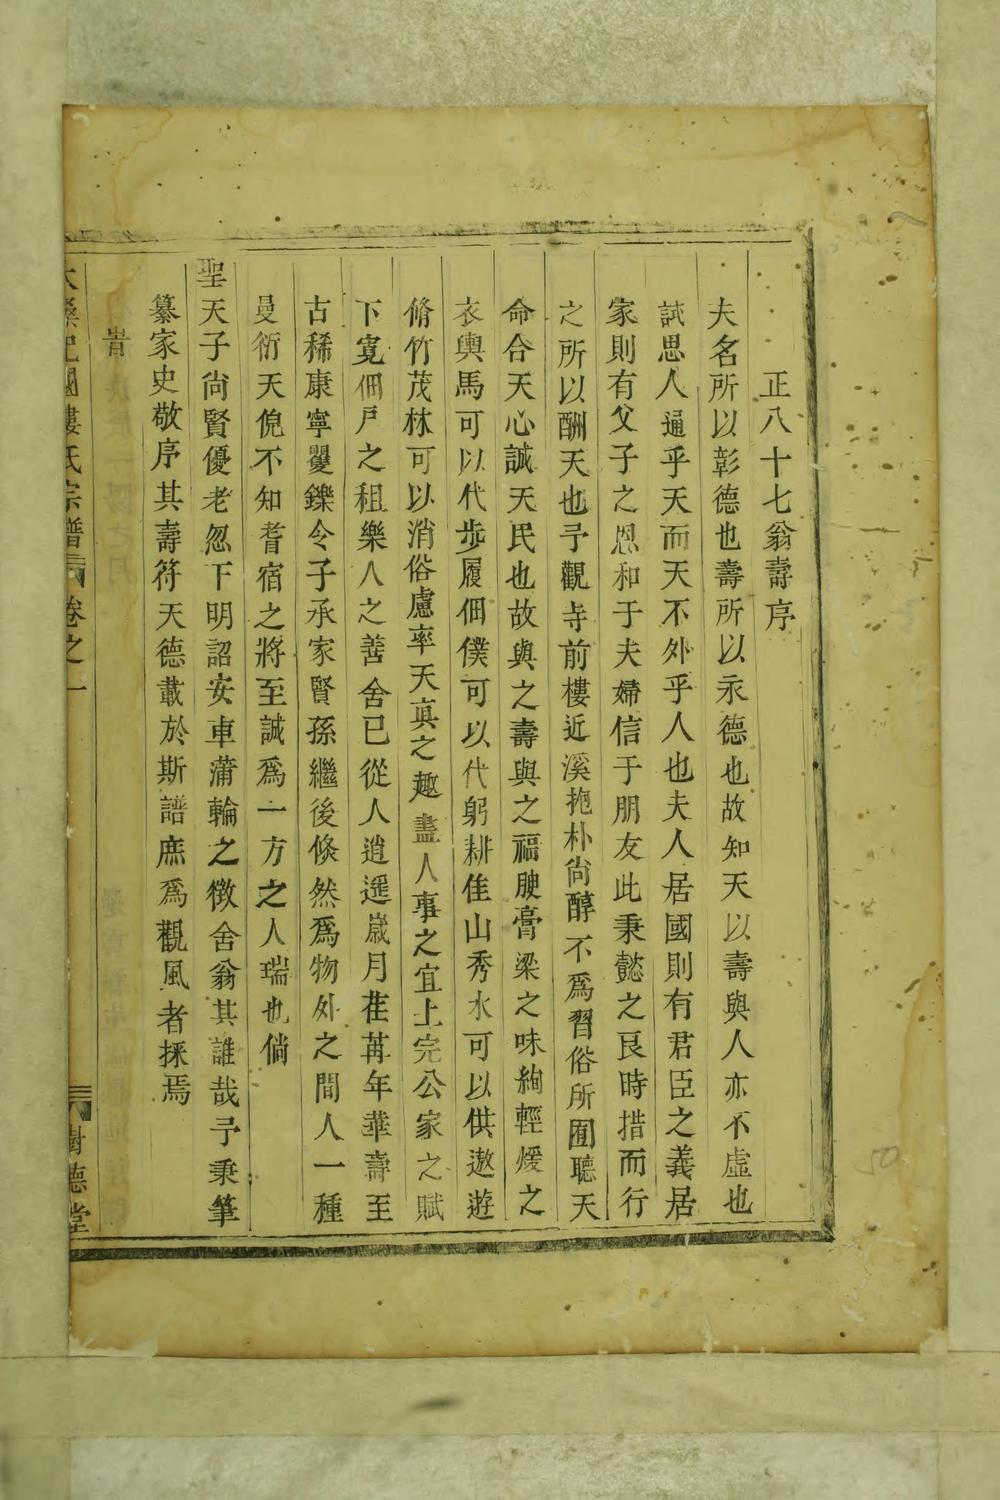 正八十七翁壽序
夫名所以彰德也壽所以永德也故知天以壽與人亦不虛也
試思人通乎天而天不外乎人也夫人居國則有君臣之義居
家則有父子之恩和于夫婦信于朋友此秉懿之良時措而行
之所以酬天也予觀寺前樓近溪抱朴尚醇不爲習俗所囿聽天
命合天心誠天民也故與之壽與之福腴膏梁之味絢輕煖之
衣輿馬可以代步履佃僕可以代躬耕佳山秀水可以供遨遊
脩竹茂林可以消俗慮率天眞之趣盡人事之宜上完公家之賦
下寛佃戶之租樂人之善舍已從人逍遥歲月荏苒年華壽至
古稀康寧矍鑠令子承家賢孫繼後倏然爲物外之間人一種
曼衍天倪不知耆宿之將至誠爲一方之人瑞也倘
聖天子尚賢優老忽下明詔安車蒲輪之徴舍翁其誰哉予秉筆
纂家史敬序其壽符天德載於斯譜庶爲觀風者採焉
旹
國樓氏宗譜 卷之一 樹德堂
50